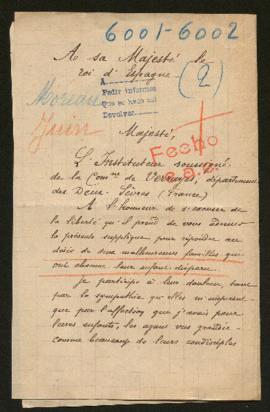 6001-6002
A sa Majesté le
roi d'Espagne
(2)
A
Pedir informes
Que se haga así
Devolver
Moreau
Juin
Majesté,
Fecho
L'Instituteur soussigné,
de la Com.ne de Verruyes, département
des Deux-Sèvres (France)
A l'honneur de s'excuser de
la liberté qu'il prend de vous adresser
la présente supplique pour répondre au
désir de deux malheureuses familles qui
ont chacune leur enfant disparu.
Je participe à leur douleur, tant
par la sympathie qu'elles m'inspirent
que par l'affection que j'avais pour
leurs enfants, les ayant vus grandir
comme beaucoup de leurs condisciples